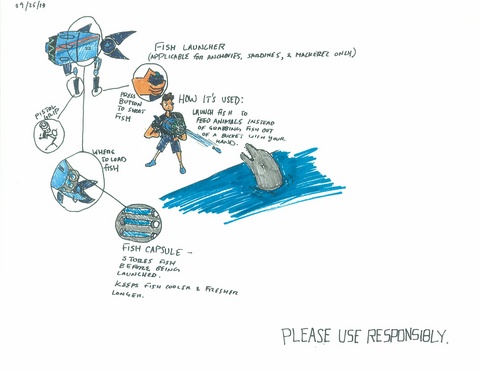 09/25/19
FISH LAUNCHER
(APPLICABLE FOR ANCHOVIES, SARDINES, & MACKEREL ONLY)
PRESS
BUTTON
TO SHOOT
FISH
HOW IT'S USED:
LAUNCH FISH TO
FEED ANIMALS INSTEAD
OF GRABBING FISH OUT
OF A BUCKET WITH YOUR
HAND.
PISTOL
GRIP
WHERE
TO LOAD
FISH
FISH CAPSULE -
STORES FISH
BEFORE BEING
LAUNCHED.
KEEPS FISH COOLER & FRESHER
LONGER.
PLEASE USE RESPONSIBLY.